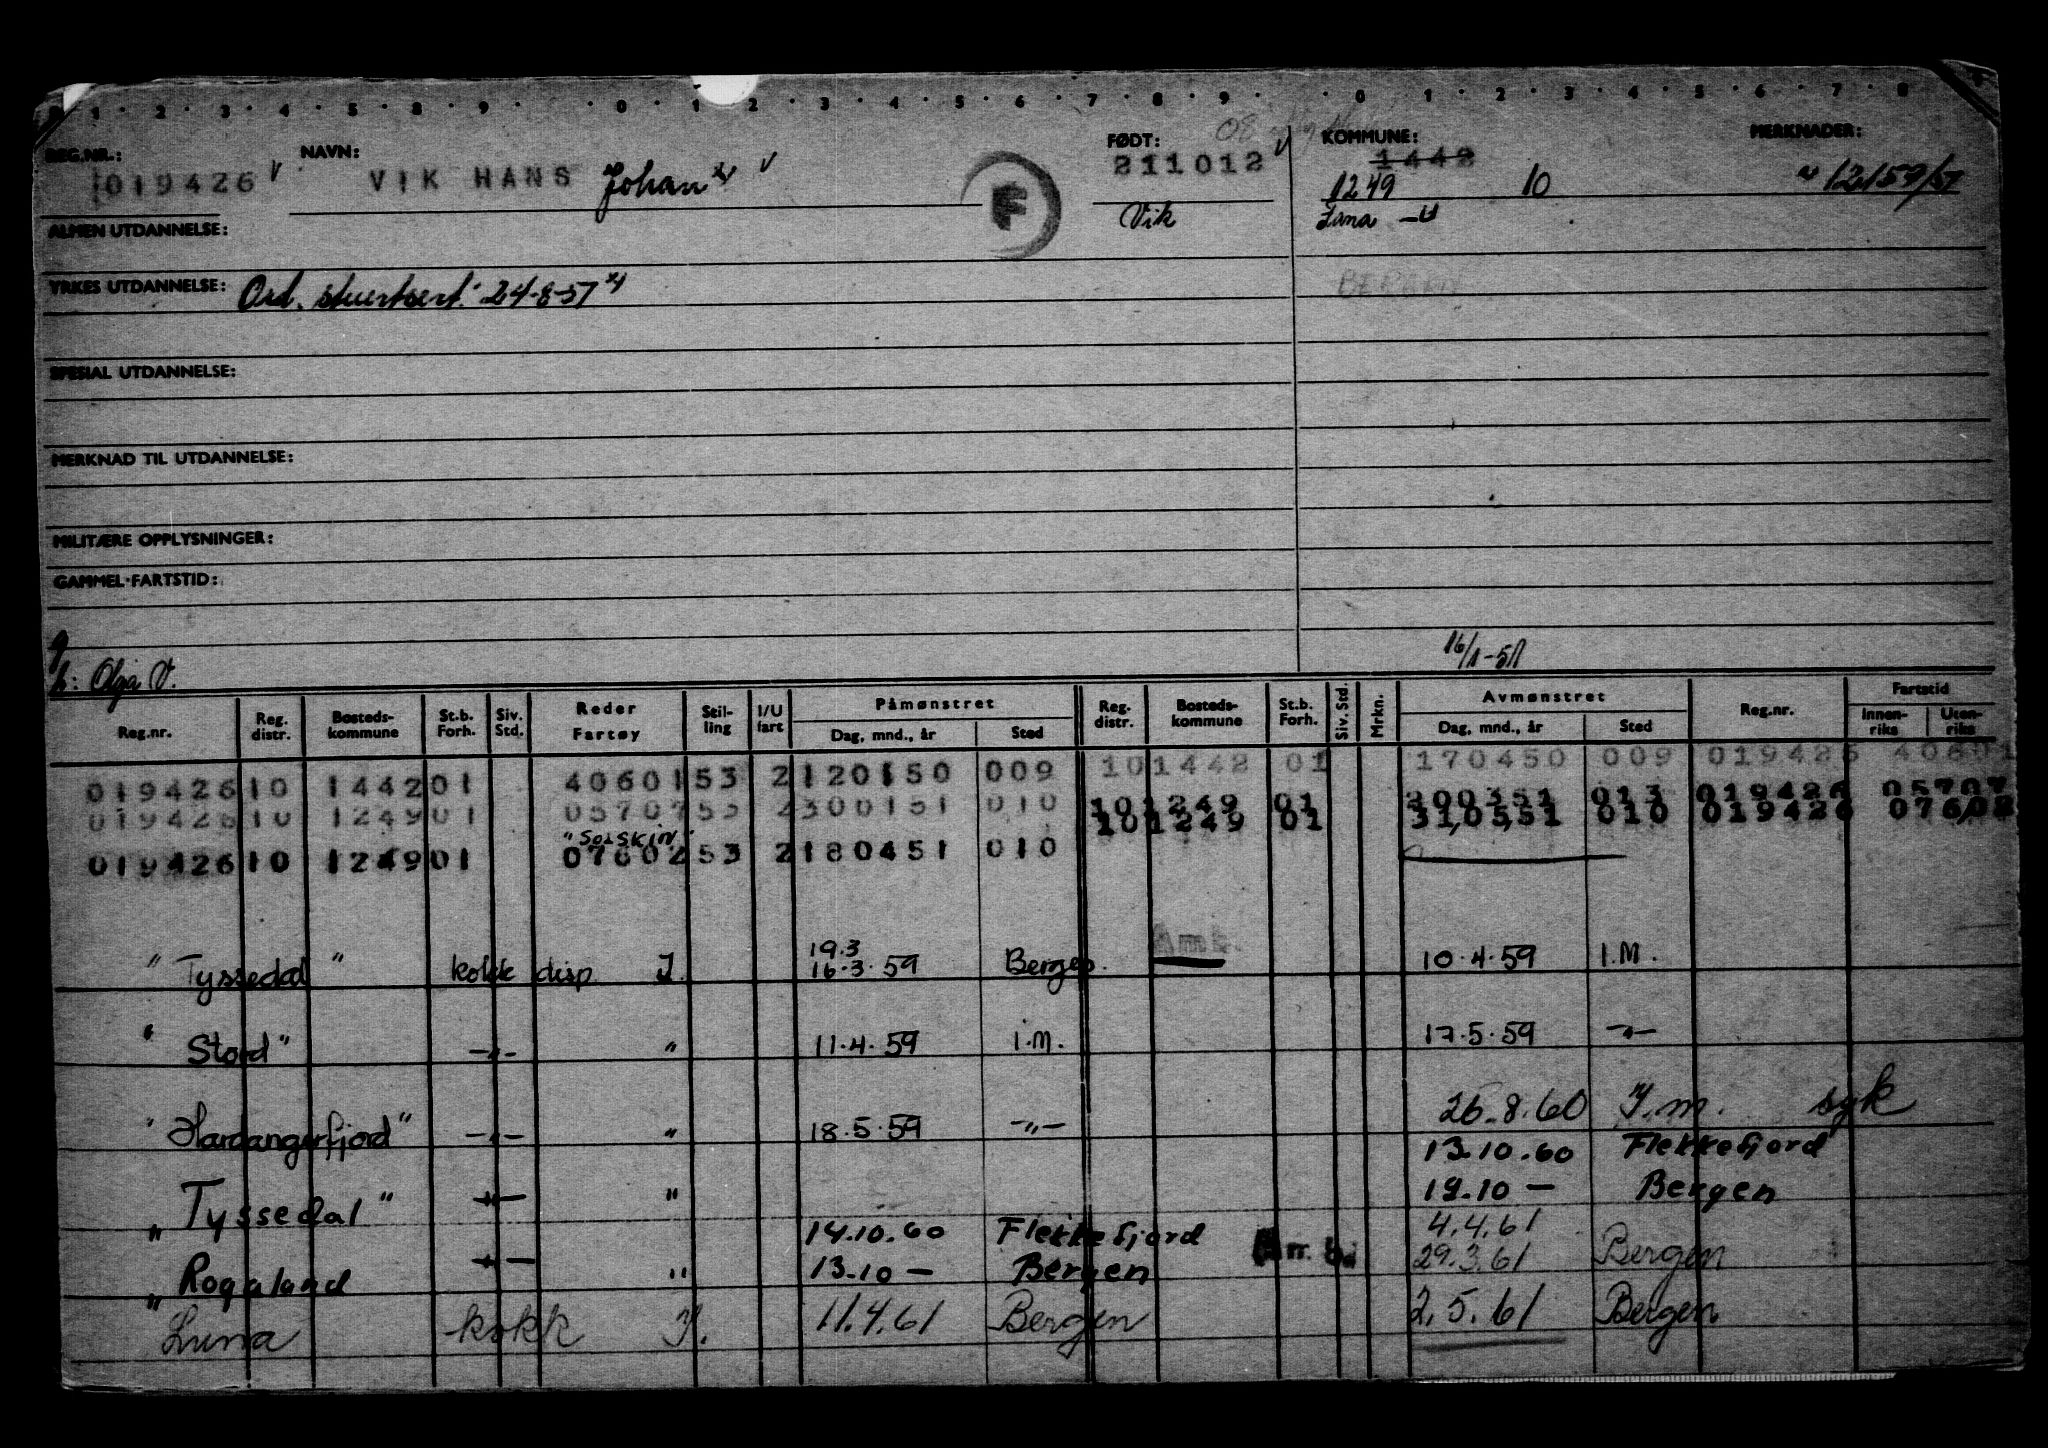 1 · 2 · 3 · 4 · 5 · 8 · 9 · · 0 · 1 · 2 · 3 · 4 · 5 · 6 · 7 · 8 · 9 · · 0 · 1 · 2 · 3 · 4 · 5 · 6 · 7 · 8
REG.NR.: NAVN: FØDT: KOMMUNE: MERKNADER:
019426 VIK HANS Johan 211012 1442
F 1249 10 12159/57
Vik
ALMEN UTDANNELSE:
YRKES UTDANNELSE: Ord. stuertsert. 24-8-57
BERGEN
SPESIAL UTDANNELSE:
MERKNAD TIL UTDANNELSE:
MILITÆRE OPPLYSNINGER:
GAMMEL-FARTSTID:
g
h: Olga V. 16/1-51
Reg.nr. Reg. distr. Bosteds-kommune St.b. Forh. Siv. Std. Reder Fartøy Stil-ling I/U fart Påmønstret Dag, mnd., år Sted Reg. distr. Bosteds-kommune St.b. Forh. Siv. Std. Mrkn. Avmønstret Dag, mnd., år Sted Reg.nr. Fartstid Innen-riks Uten-riks
019426 10 1442 01 40601 53 2 120150 009 10 1442 01 170450 009 019426 40601
019426 10 1249 01 05707 53 2 300151 010 10 1249 01 200351 013 019426 05707
"SOLSKIN" 10 1249 01 310551 010 019426 07602
019426 10 1249 01 07602 53 2 180451 010
19.3
"Tyssedal" kokk disp. I. 16.3.59 Bergen. Amb. 10.4.59 I.M.
"Stord" -"- " 11.4.59 I.M. 17.5.59 -"-
"Hardangerfjord" -"- " 18.5.59 -"- 26.8.60 I.m. syk
13.10.60 Flekkefjord
"Tyssedal" -"- " 19.10 — Bergen
14.10.60 Flekkefjord 4.4.61
"Rogaland -"- " 13.10 — Bergen 29.3.61 Bergen
"Luna kokk I. 11.4.61 Bergen 2.5.61 Bergen